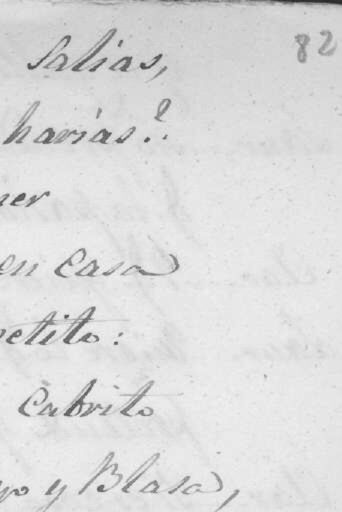 82
salias,
harias?
ner
en casa
petito:
cabrito
yo y Blasa,